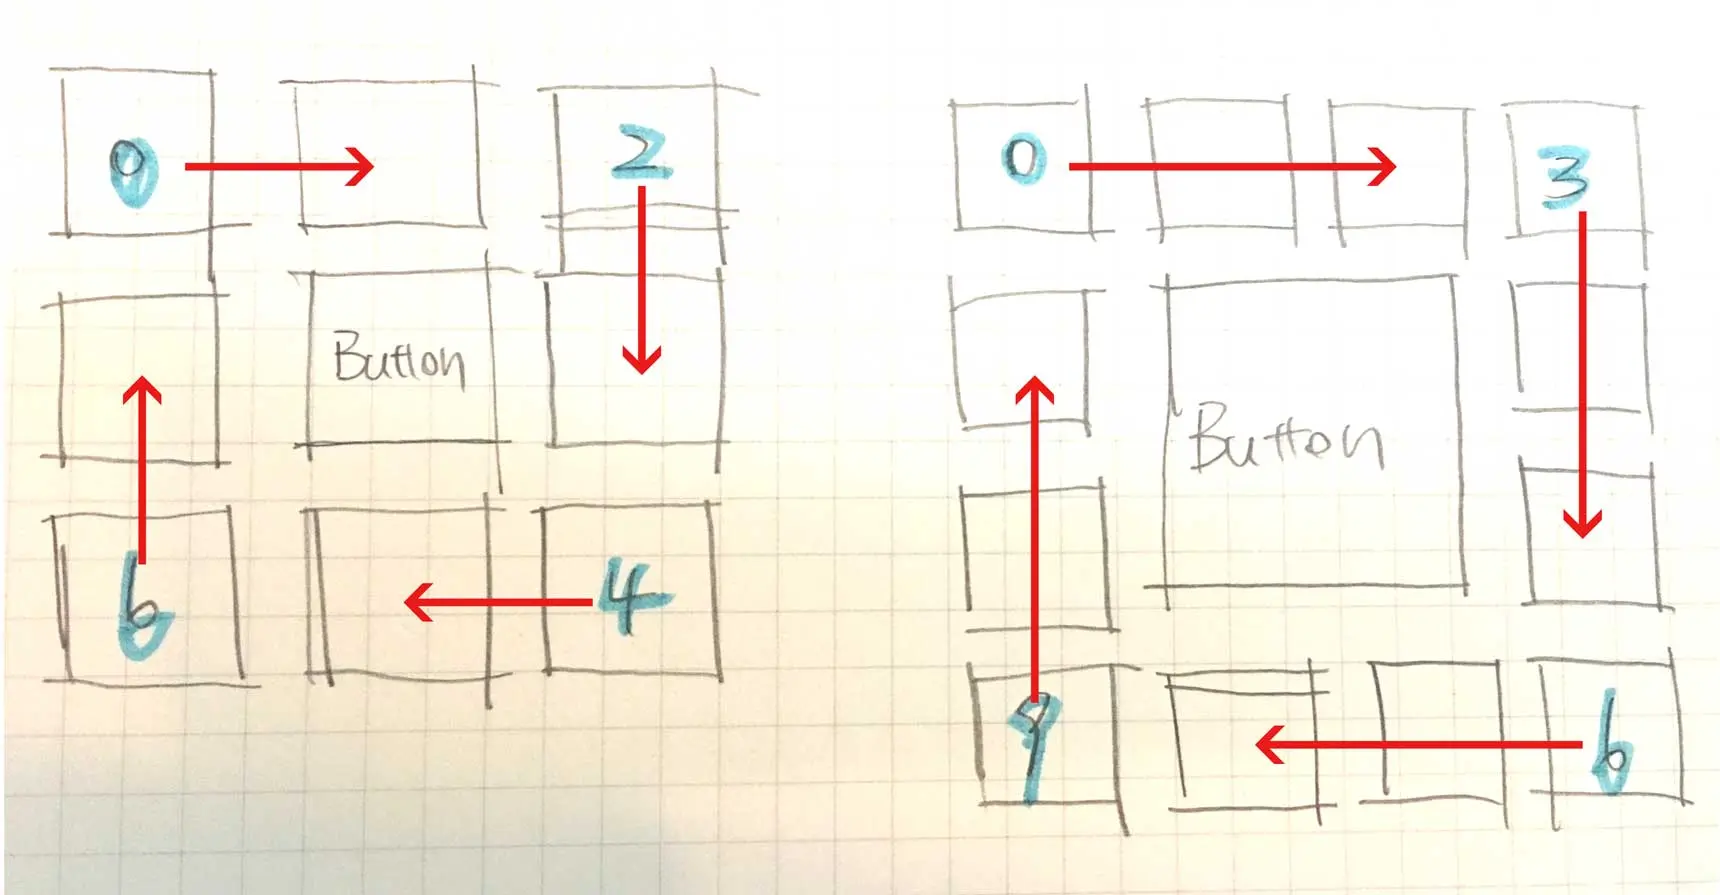 0 2
Button
6 4
0 3
Button
9 6